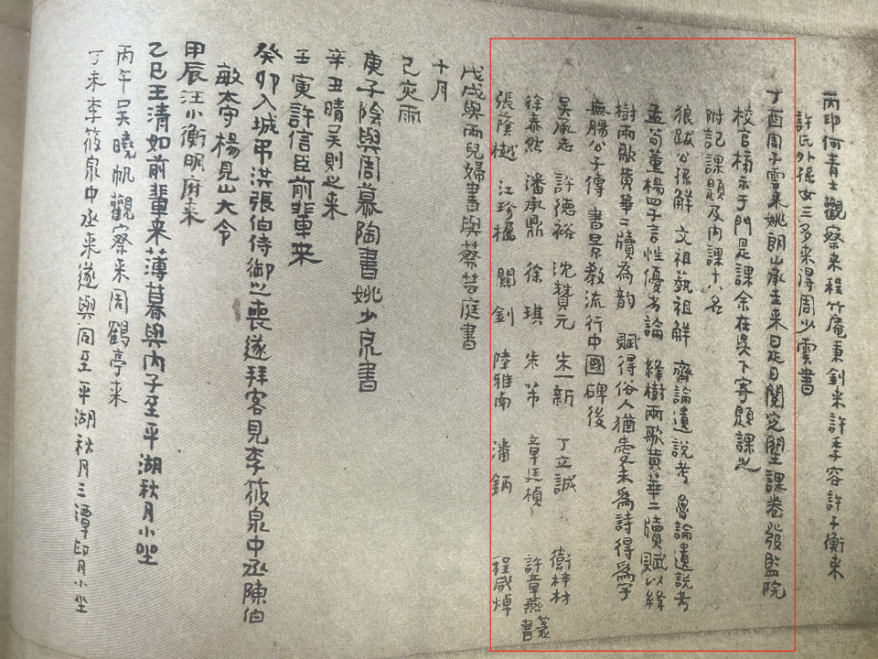 丙申何青士觀察来程竹庵秉釗来許季容許子衡来
許氏外孫女三多来得周少雲書
丁酉周子雲来姚朗山承圭来是日閱定壁課卷發監院
校官榜示于門是課余在吳下寄題課之
附記課題及内課十八名
狼跋公孫解 文祖蓺祖解 齊論遺説考 魯論遺説考
孟荀董楊四子言性優劣論 絳樹兩歌黄華二牘賦以絳
樹兩歌黄華二牘為韵 賦得俗人猶愛未為詩得為字
無腸公子傳 書景教流行中國碑後
吴承志 許德裕 沈賛元 朱一新 丁立誠 衛梓材
徐泰然 潘鼎 徐琪 朱芾 章廷楨 許章燕篆書
張蔭樾 江珍楹 關釗 陸雅南 潘鈵 程咸焯
戊戌與兩兒婦書與蔡芸庭書
十月
己亥雨
庚子陰與周慕陶書姚少泉書
辛丑晴吴則之来
壬寅許信臣前輩来
癸卯入城弔洪張伯侍御之喪遂拜客見李筱泉中丞陳伯
敏太守楊見山大令
甲辰汪小衡明府来
乙巳王清如前輩来薄暮與内子至平湖秋月小坐
丙午吴曉帆觀察来周鶴亭来
丁未李筱泉中丞来遂與同至平湖秋月三潭印月小坐